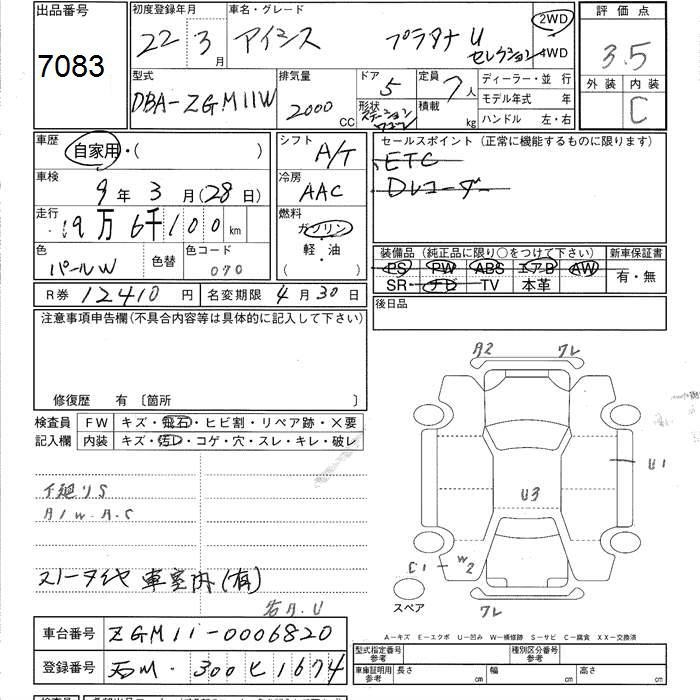 出品番号
7083
初度登録年月 22年 3月
車名・グレード アイシス プラタナ U セレクション
2WD
4WD
評価点
3.5
外装 内装
C
型式
DBA-ZGM11W
排気量
2000 CC
ドア 5
形状 ステーションワゴン
定員 7人
積載 kg
ディーラー・並行
モデル年式 年
ハンドル 左・右
車歴
自家用・( )
車検 9年 3月(28日)
走行 19万6千100km
色 パールW
色替
色コード 070
シフト A/T
冷房 AAC
燃料
ガソリン
軽・油
( )
セールスポイント(正常に機能するものに限ります)
ETC
Dレコーダー
装備品(純正品に限り○をつけて下さい)
新車保証書
PS PW ABS エアB AW
有・無
SR ナビ TV 本革
後日品
R券 12410円
名変期限 4月30日
注意事項申告欄(不具合内容等は具体的に記入して下さい)
修復歴 有〔箇所 〕
検査員
記入欄
FW キズ・飛石・ヒビ割・リペア跡・×要
内装 キズ・汚レ・コゲ・穴・スレ・キレ・破レ
下廻リS
A/W.A.C
スノータイヤ 車室内(有)
A2
ワレ
U1
U3
C1
W2
スペア
ワレ
A-キズ E-エクボ U-凹み W-補修跡 S-サビ C-腐食 XX-交換済
車台番号 ZGM11-0006820
登録番号 300 ヒ 1674
型式指定番号
参考
種別区分番号
参考
車庫証明用
参考
長さ cm
幅 cm
高さ cm